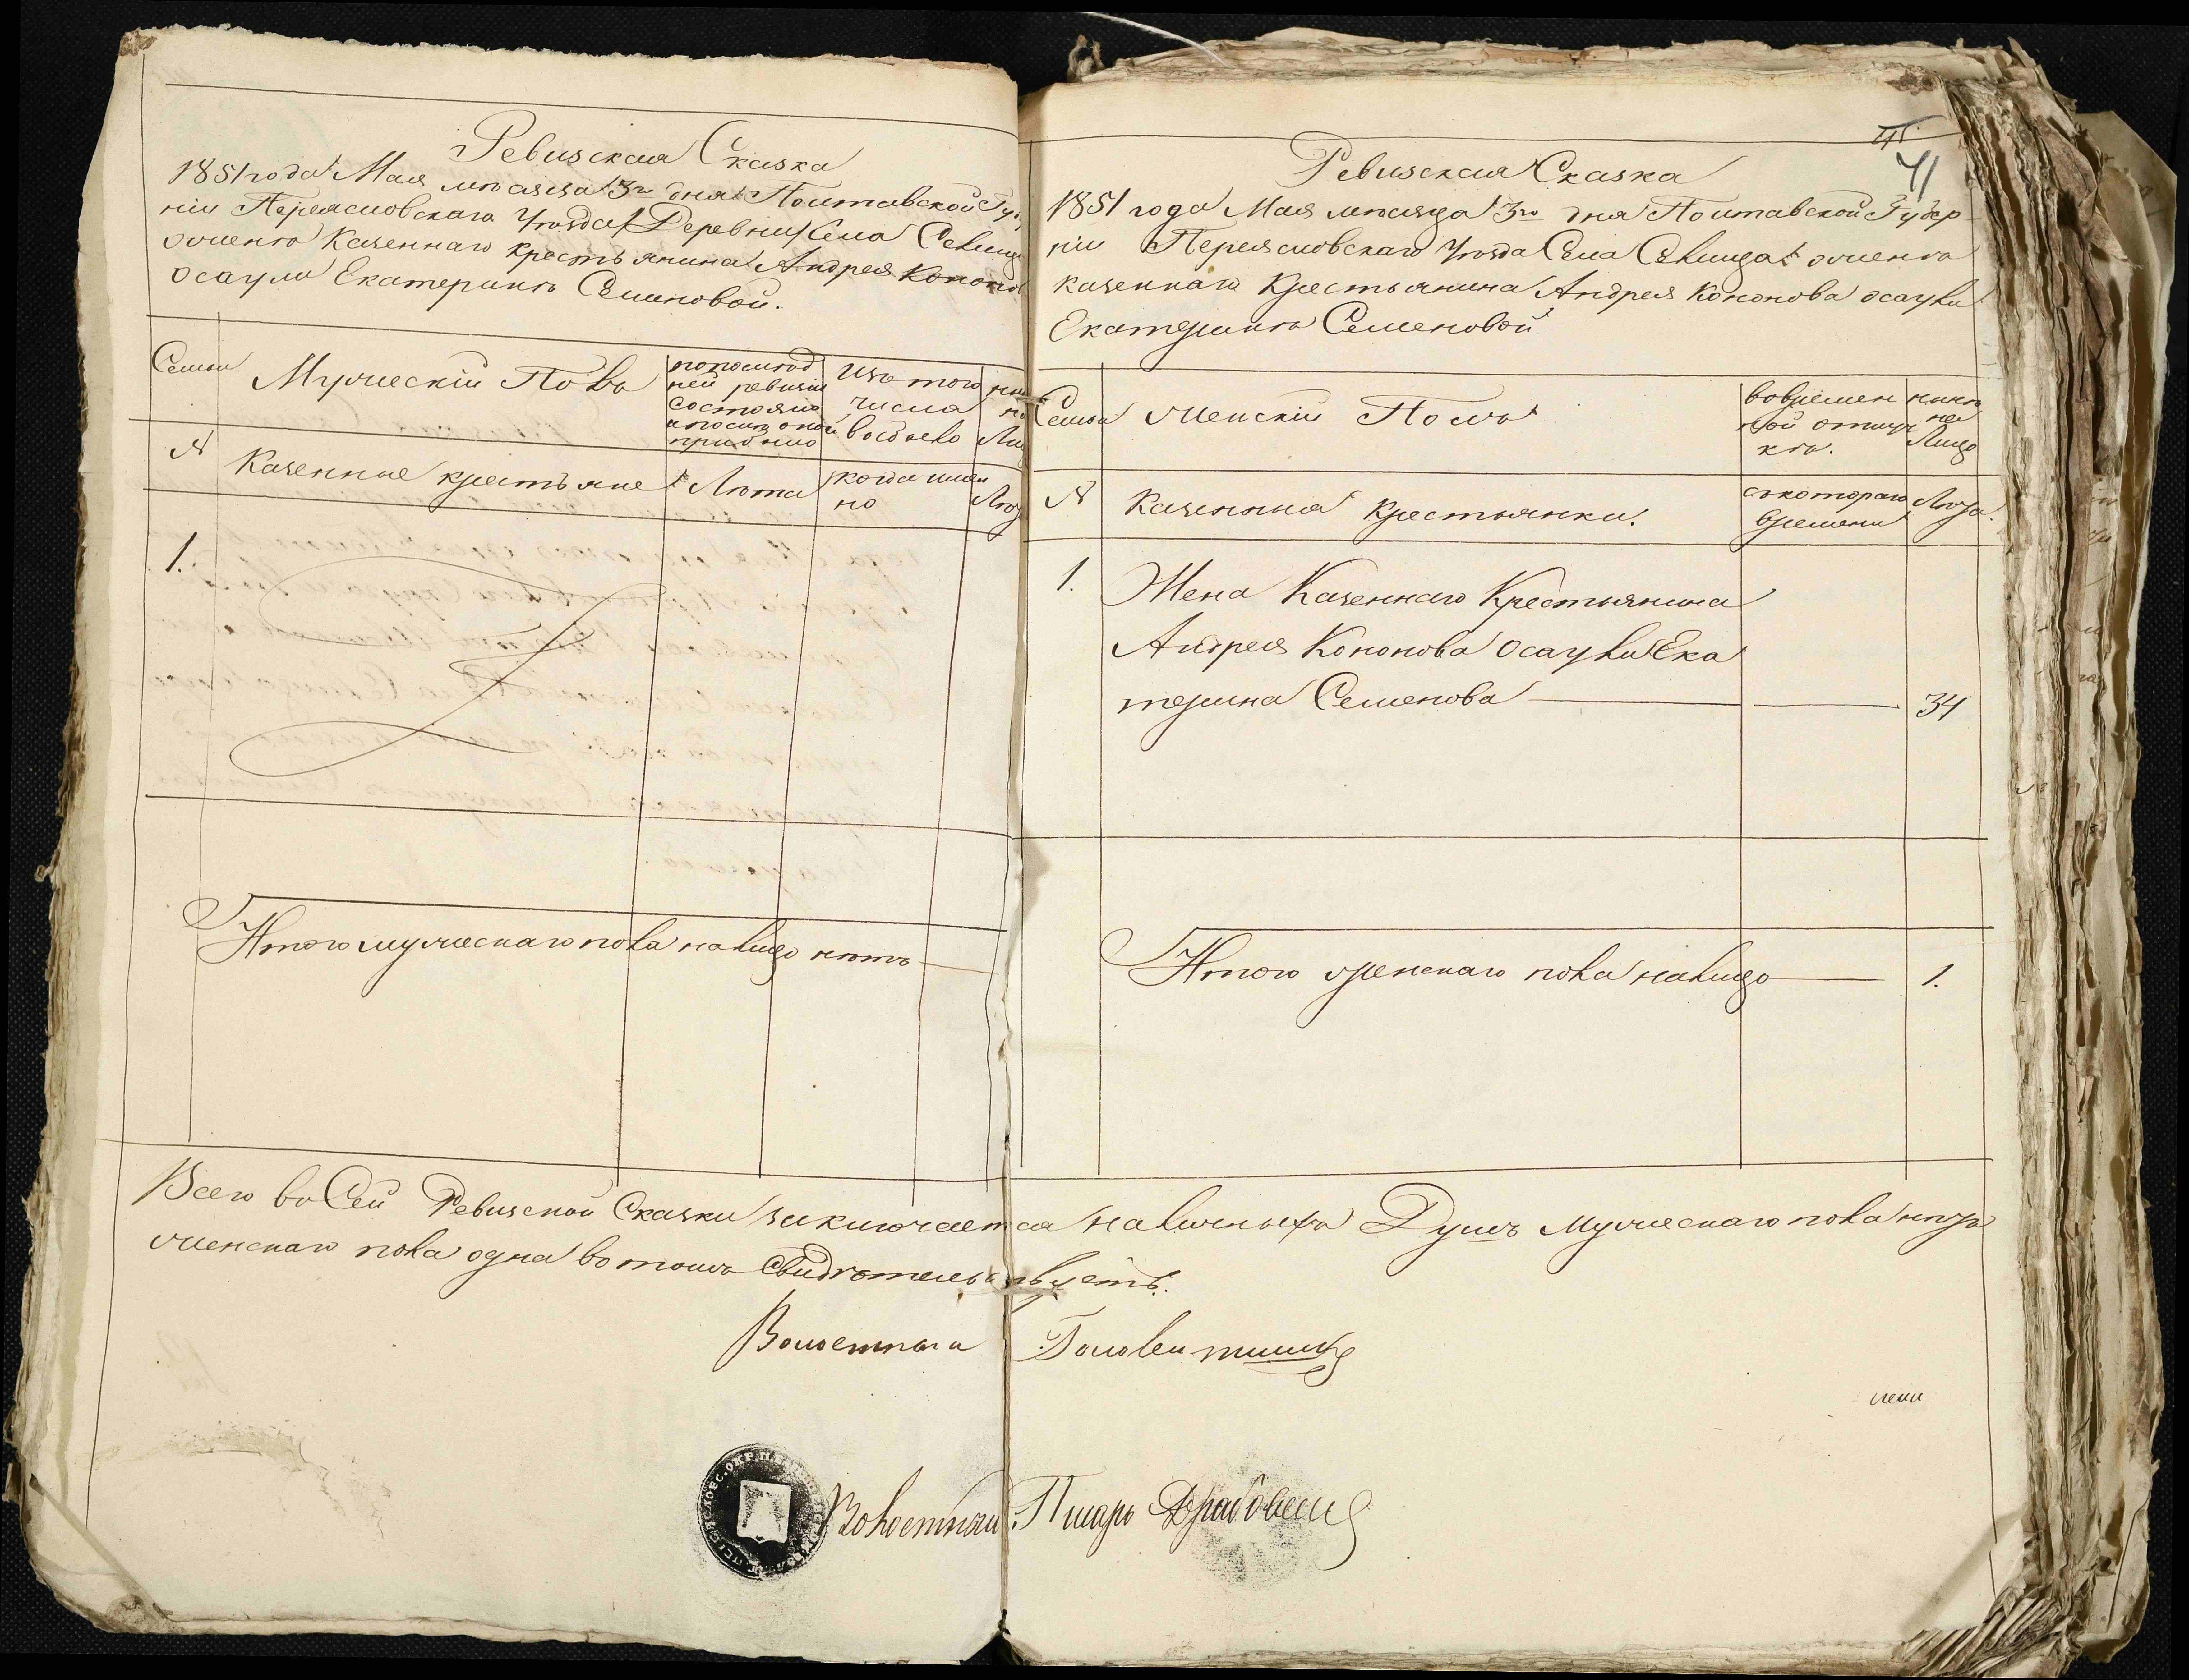 Ревизская Сказка
1851 года Мая месяца 3го дня Полтавской Губер
ніи Переясловскаго Уезда Деревни Села Селища
жиенъ Казеннаго крестьянина Андрея Конона
Осаули Екатеринъ Семеновой.
Семьи
Мужескій Полъ
по послѣд
ней ревизіи
состояло
и послѣ оной
прибыло
Изъ того
числа
выбыло
№
Казенные крестьяне
Лѣта
когда имен
но
1.
Итого мужескаго пола налицо нѣтъ
Ревизская Сказка
41
1851 года Мая месяца 3го дня Полтавской Губер
ніи Переясловскаго Уезда Села Селища
казеннаго Крестьянина Андрея Кононова осаули
Екатеринъ Семеновой
Семьи
Женскій Полъ
во времен
ной отлуч
къ.
нынѣ
Лицо
№
Казенныя Крестьянки.
съ котораго
времени
Лѣта.
1.
Жена Казеннаго Крестьянина
Андрея Кононова Осаули Ека
терина Семенова
34
Итого женскаго пола налицо
1.
Всего въ Сей Ревизской Сказки заключается наличныхъ Душъ Мужескаго пола нѣтъ
женскаго пола одна въ томъ Свидѣтельствуетъ.
Волостный Голова
Волостный Писарь